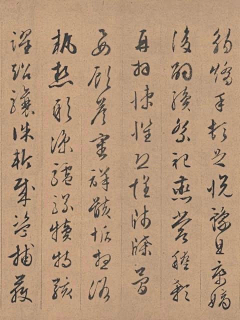 觴矯手頓足悅豫且康嫡
後嗣續祭祀烝嘗稽顙
再拜悚懼恐惶牋牒簡
要顧答審詳骸垢想浴
執熱願涼驢騾犢特駭
躍超驤誅斬賊盜捕獲